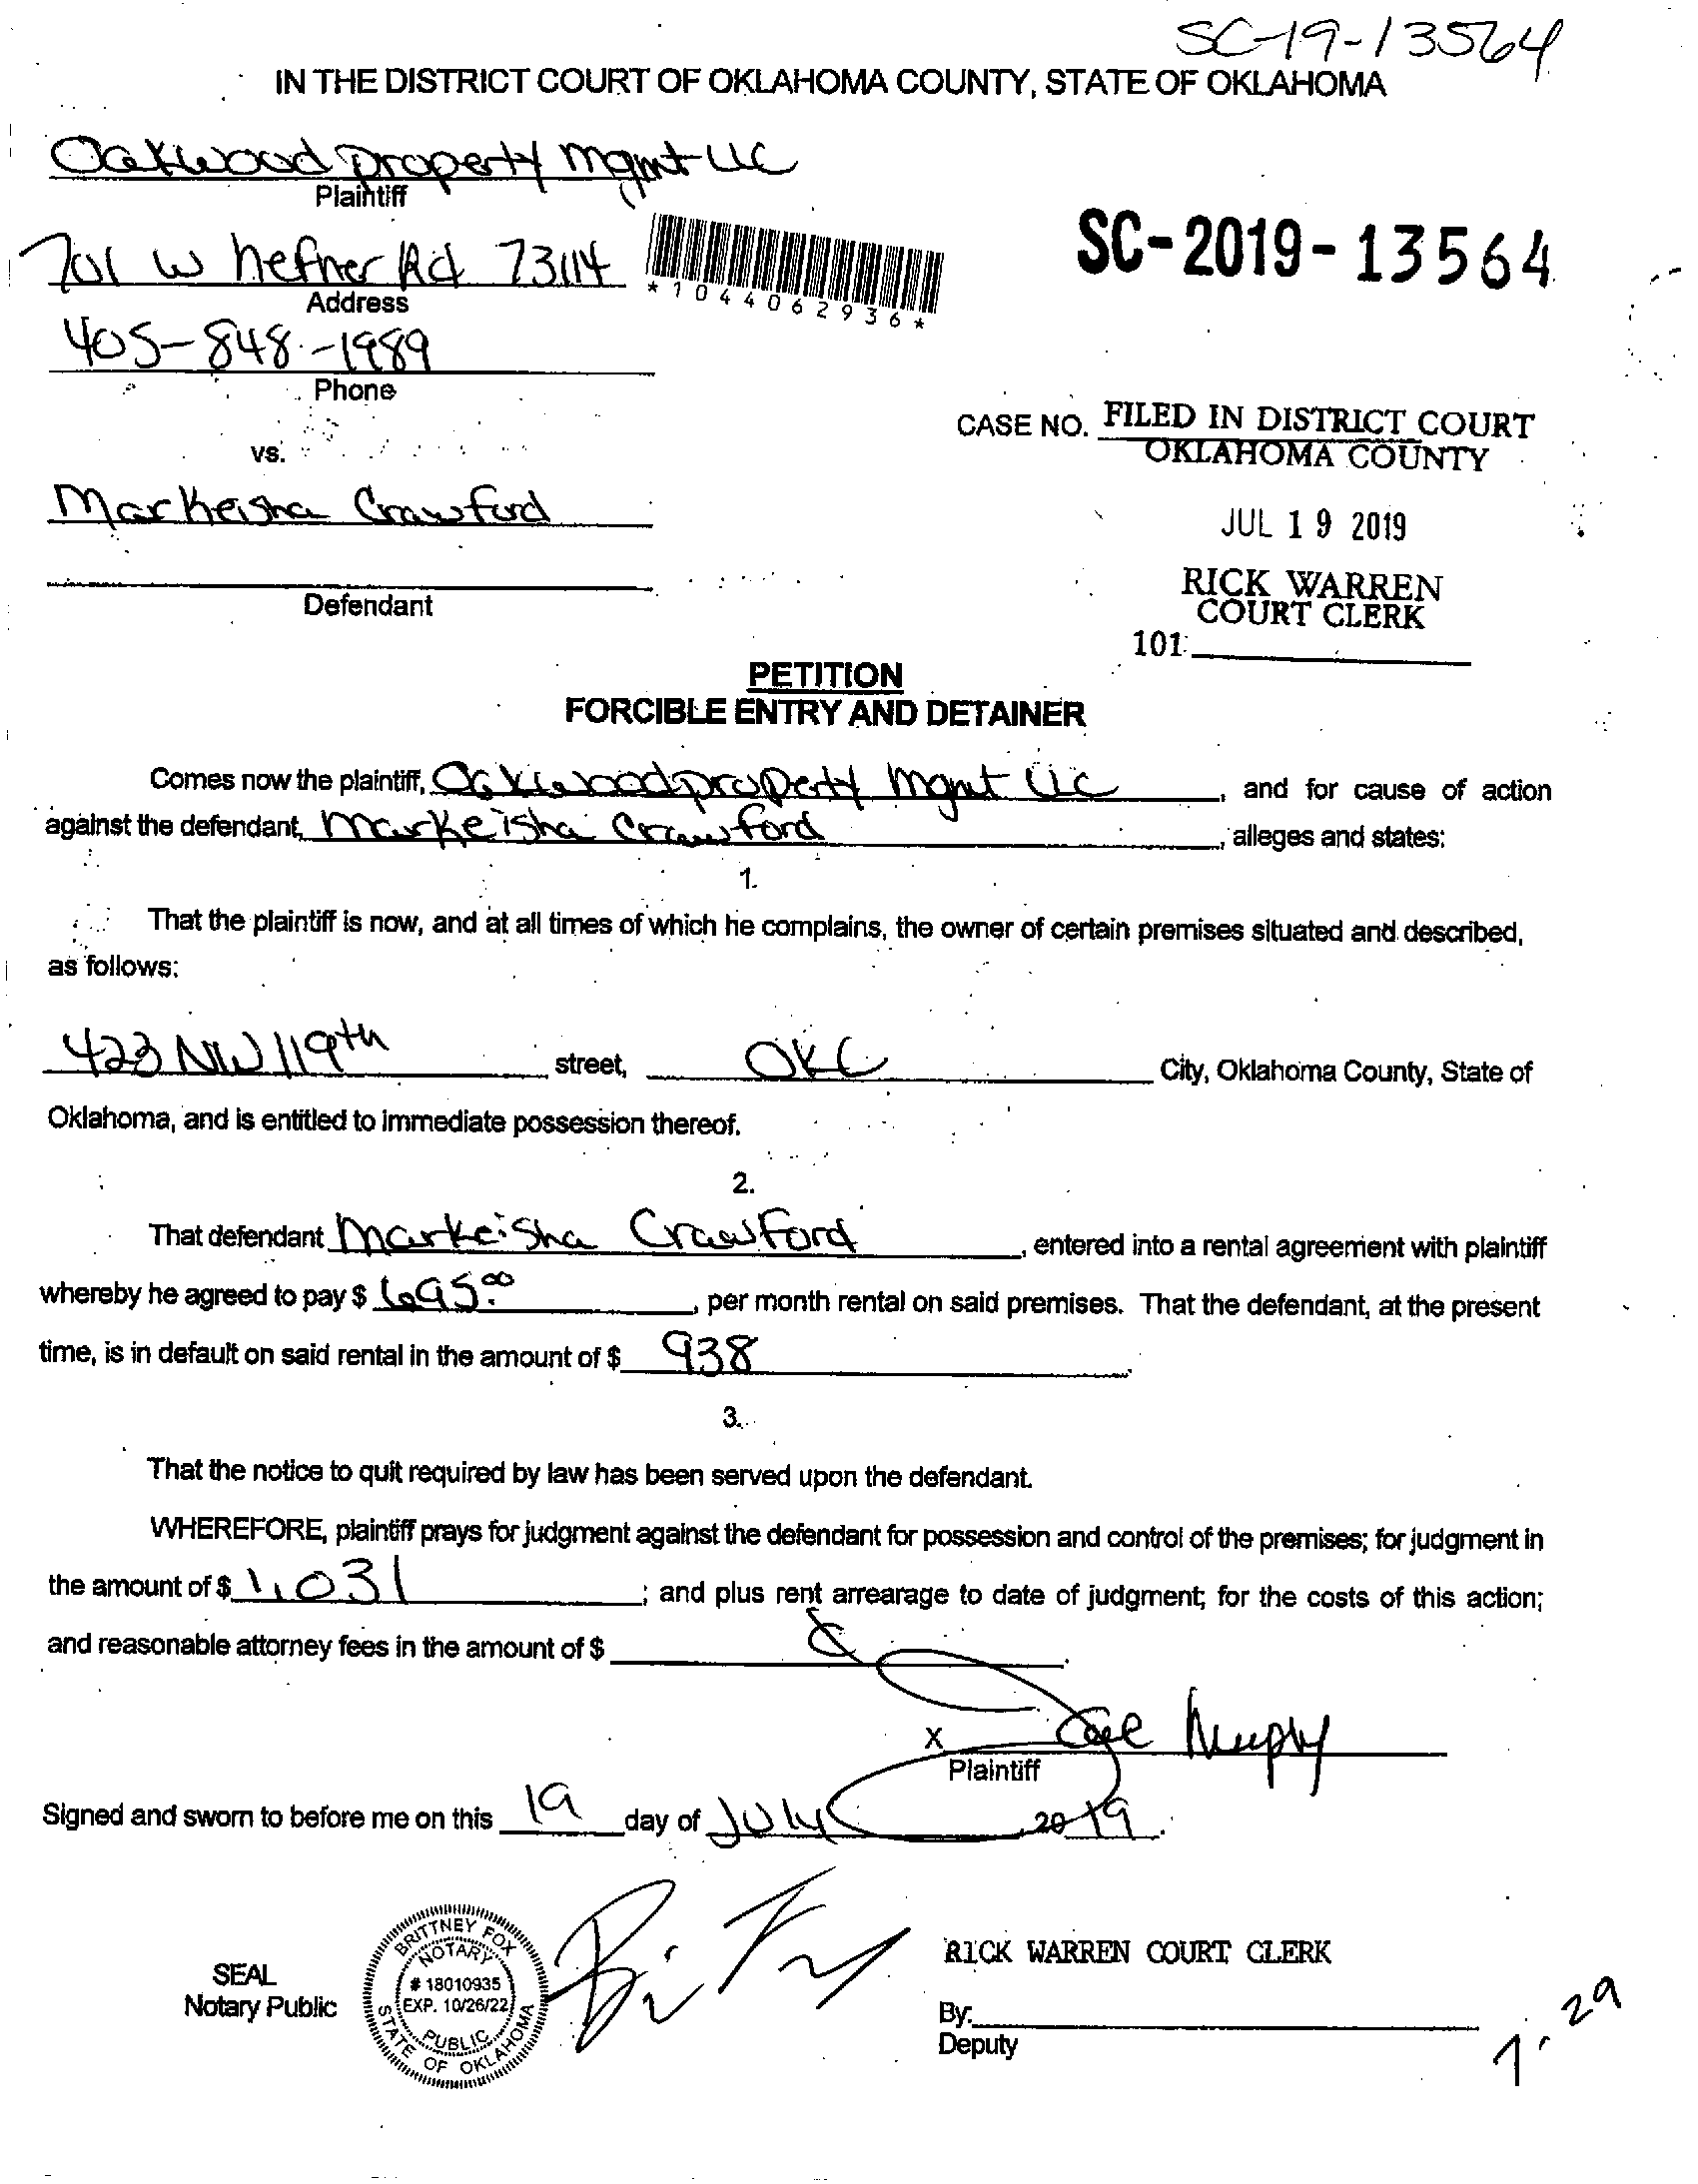 SC-19-13564
IN THE DISTRICT COURT OF OKLAHOMA COUNTY, STATE OF OKLAHOMA
Oakwood property mgmt LLC
Plaintiff
701 W hefner Rd 73114
Address
*1044062936*
SC-2019-13564
405-848-1989
Phone
CASE NO. FILED IN DISTRICT COURT
OKLAHOMA COUNTY
vs.
Markeisha Crawford
JUL 19 2019
Defendant
RICK WARREN
COURT CLERK
101
PETITION
FORCIBLE ENTRY AND DETAINER
Comes now the plaintiff, Oakwood property mgmt LLC, and for cause of action
against the defendant, Markeisha Crawford, alleges and states:
1.
That the plaintiff is now, and at all times of which he complains, the owner of certain premises situated and described,
as follows:
423 NW 119th street, OKC City, Oklahoma County, State of
Oklahoma, and is entitled to immediate possession thereof.
2.
That defendant Markeisha Crawford, entered into a rental agreement with plaintiff
whereby he agreed to pay $ 695.00, per month rental on said premises. That the defendant, at the present
time, is in default on said rental in the amount of $ 938.
3.
That the notice to quit required by law has been served upon the defendant.
WHEREFORE, plaintiff prays for judgment against the defendant for possession and control of the premises; for judgment in
the amount of $ 1,031; and plus rent arrearage to date of judgment; for the costs of this action;
and reasonable attorney fees in the amount of $
X Murphy
Plaintiff
Signed and sworn to before me on this 19 day of July, 2019.
BRITTNEY FOX
NOTARY
# 18010935
EXP. 10/26/22
PUBLIC
STATE OF OKLAHOMA
SEAL
Notary Public
RICK WARREN COURT CLERK
By:
Deputy
7.29